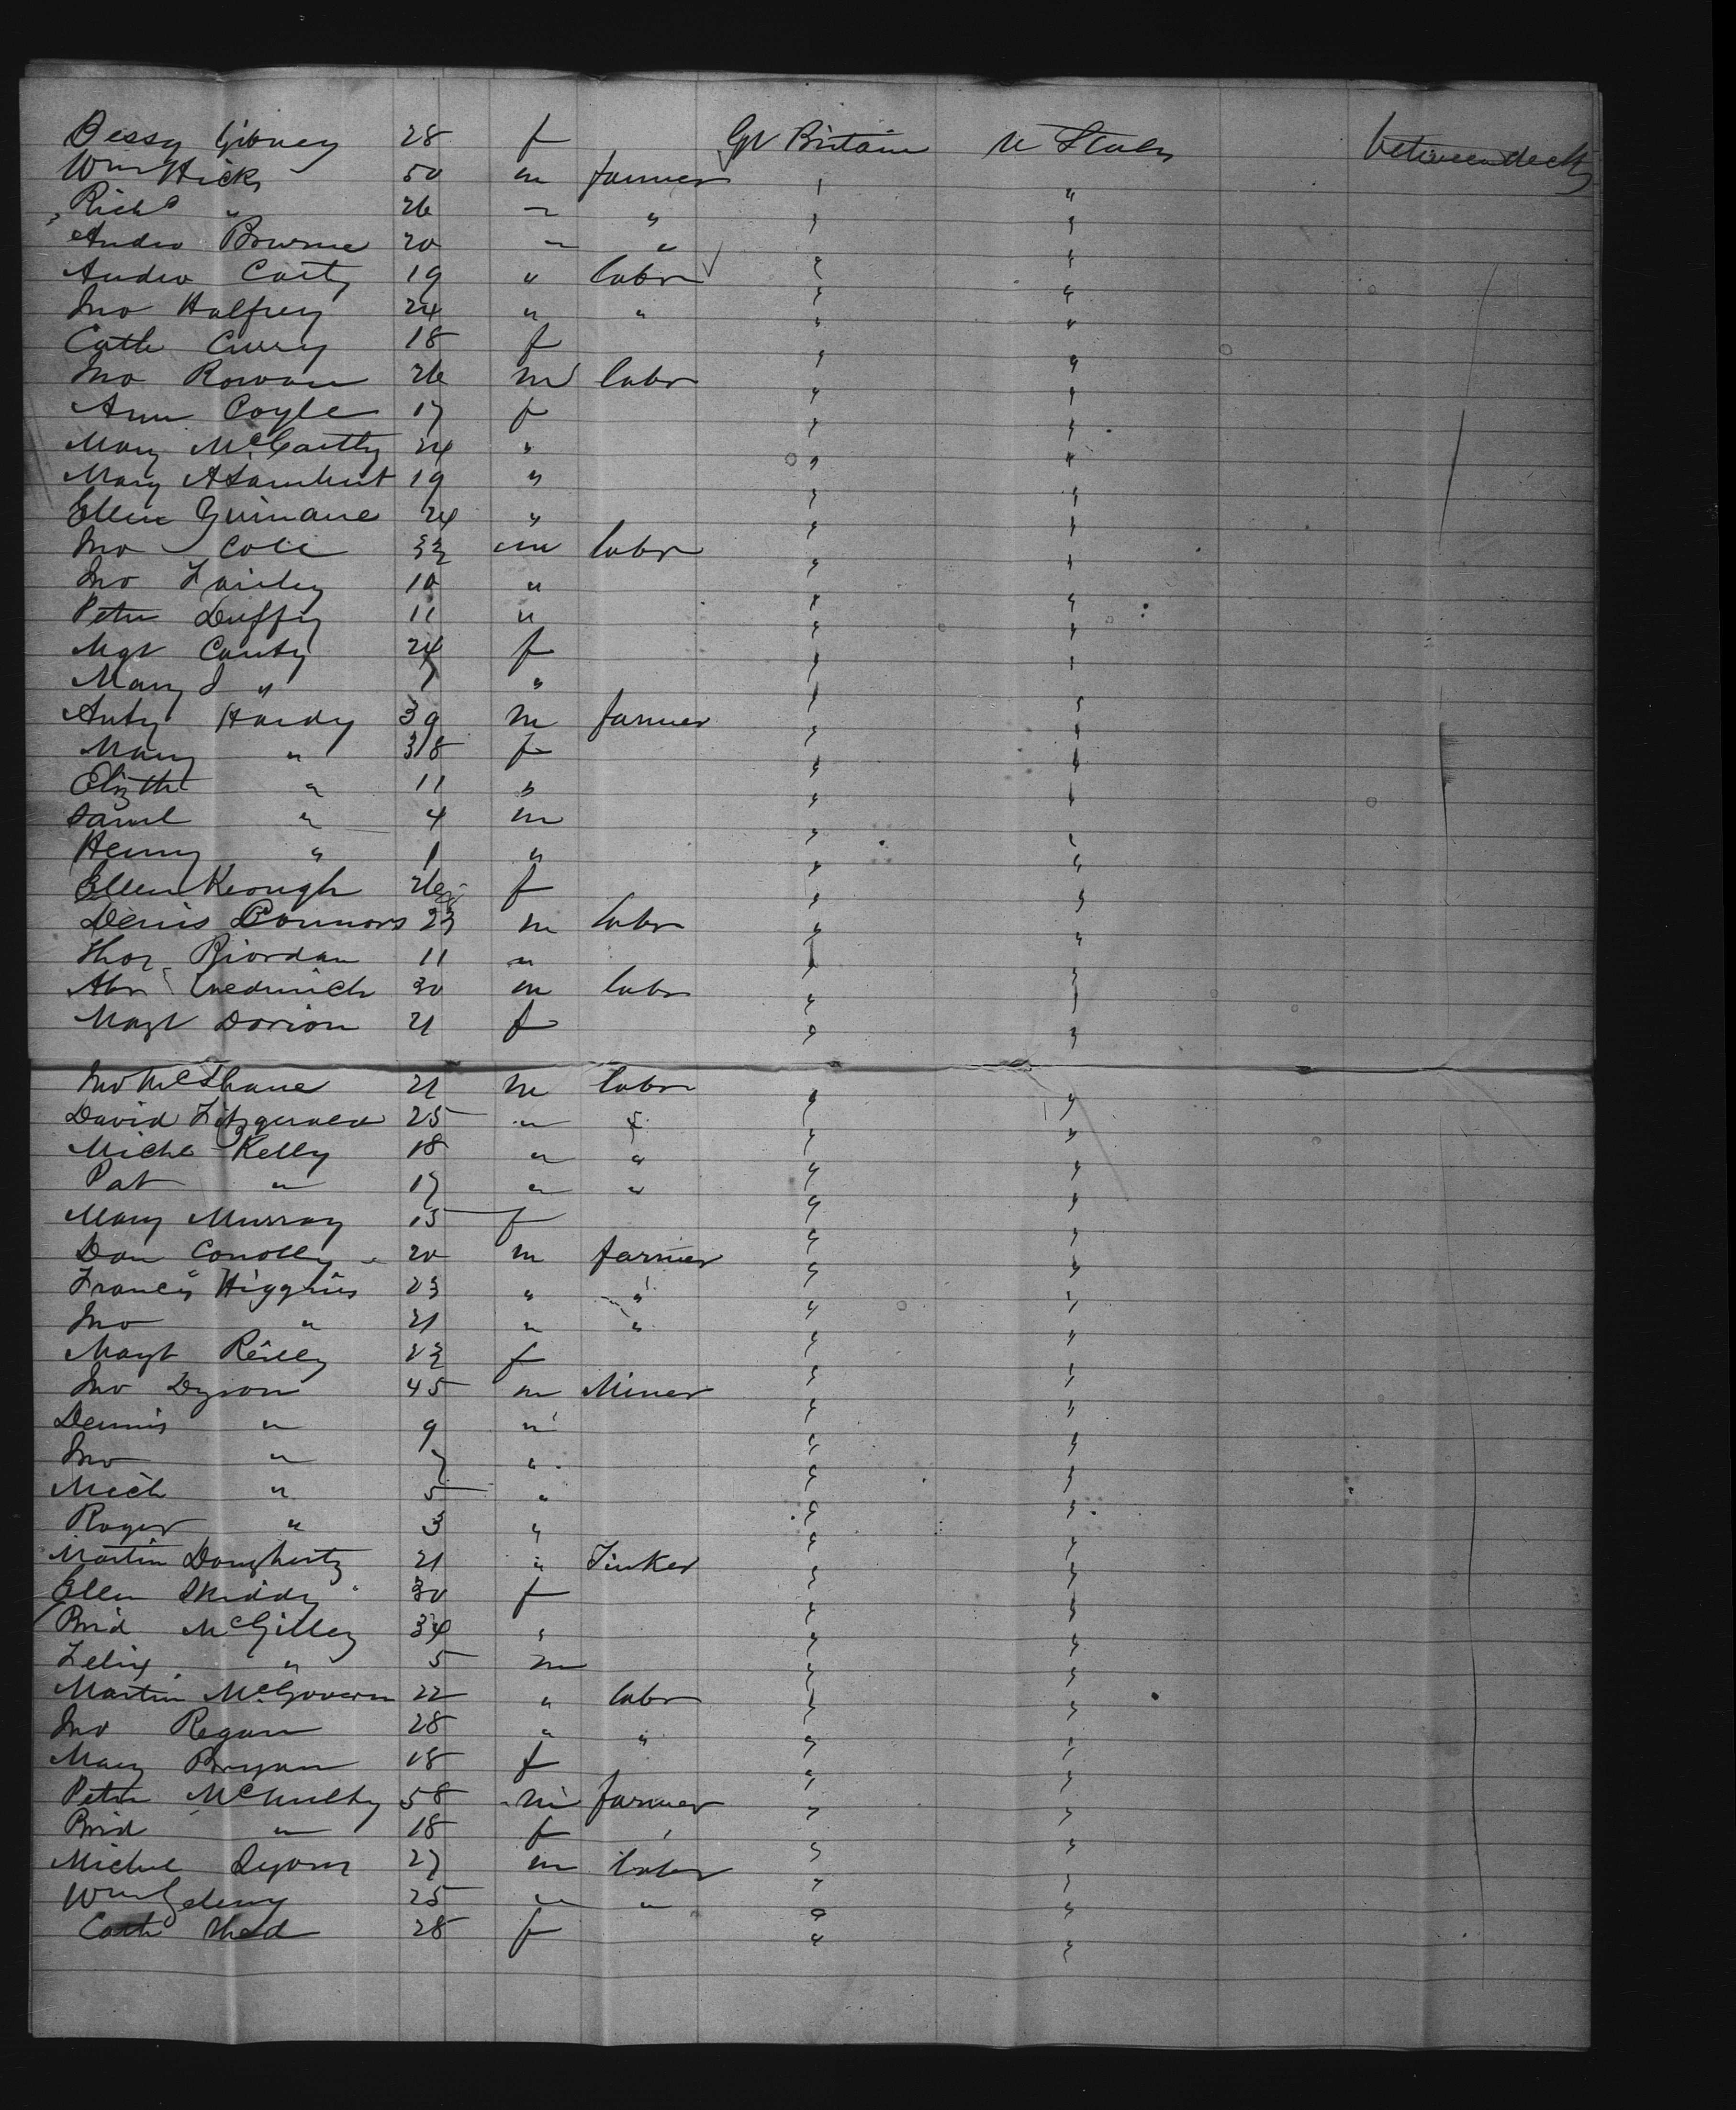 Bessy Gibney 28 f Gt Britain U States between decks
Wm Hicks 50 m farmer " "
Richd " 26 " " " "
Andw Bourne 20 " " " "
Andw Carty 19 " labr " "
Jno Halfrey 24 " " " "
Cath Curry 18 f " "
Jno Rowan 26 m labr " "
Ann Coyle 17 f " "
Mary McCartty 24 " " "
Mary A 19 " " "
Ellen Guinane 24 " " "
Jno Cole 33 m labr " "
Jno Farley 10 " " "
Peter Duffy 11 " " "
Mgt Canty 24 f " "
Mary J " 7 " " "
Anty Hardy 39 m farmer " "
Mary " 38 f " "
Elizth " 11 " " "
Saml " 4 m " "
Henry " 1 " " "
Ellen Keough 26 f " "
Denis Connors 23 m labr " "
Thos Riordan 11 " " "
Abr 30 m labr " "
Magt Dorion 21 f " "
Jno McShane 21 m labr " "
David Fitzgerald 25 " " " "
Michl Kelly 18 " " " "
Pat " 17 " " " "
Mary Murray 15 f " "
Dan Conolly 20 m farmer " "
Francis Higgins 23 " " " "
Jno " 21 " " " "
Magt Reilly 22 f " "
Jno Dyson 45 m Miner " "
Dennis " 9 " " "
Jno " 7 " " "
Mich " 5 " " "
Roger " 3 " " "
Martin Doughertz 21 " Tinker " "
Ellen Skiddy 30 f " "
Brid McGilley 34 " " "
Felix " 5 m " "
Martin McGovern 22 " labr " "
Jno Regan 28 " " " "
Mary Bryan 18 f " "
Peter McNulty 58 m farmer " "
Brid " 18 f " "
Michl 27 m labr " "
Wm 25 " " " "
Cath 28 f " "